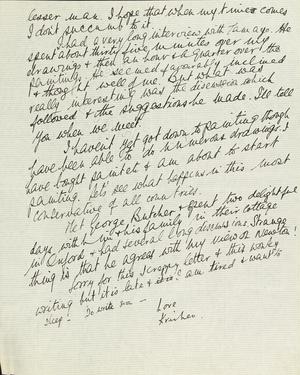 lesser man. I hope that when my time comes
I don't succumb to it.
I had a very long interview with
spent about thirty five minutes over my
drawings & then an hour & a quarter over the
paintings. He seemed favourably inclined
& thought well of me. But what was
really interesting was the discussion which
followed & the suggestions he made. I'll tell
you when we meet.
I haven't yet got down to painting though
have been able to do numerous drawings. I
have bought paints etc & am about to start
painting. Let's see what happens in this most
conservative of all countries.
Met George Butcher & spent two delightful
days with him & his family in their cottage
in Oxford & had several long discussions. Strange
thing is that he agrees with my view on Newton!
Sorry for this scrappy letter & this wonky
writing but it is late & I am tired & want to
sleep. Do write soon —
Love
Krishen